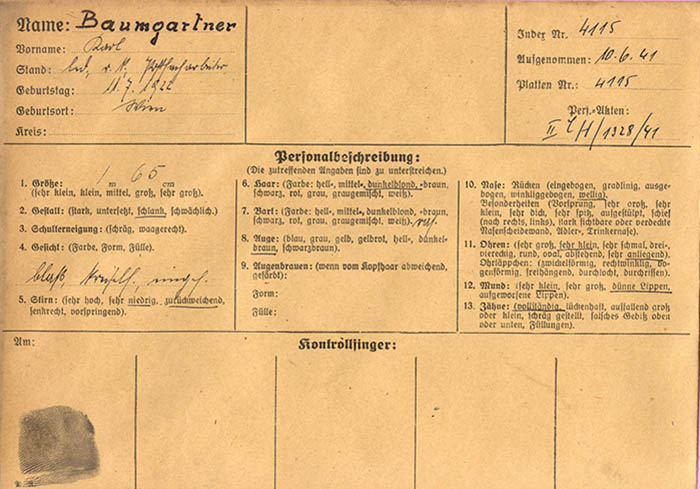 Name: Baumgartner
Vorname: Karl
Stand: led, r. k.
Geburtstag: 11.7.1922
Geburtsort: Wien
Kreis:
Index Nr. 4115
Aufgenommen: 10.6.41
Platten Nr.: 4115
Pers.-Akten:
/1328/41
Personalbeschreibung:
(Die zutreffenden Angaben sind zu unterstreichen.)
1. Größe: 1 m 65 cm
(sehr klein, klein, mittel, groß, sehr groß).
2. Gestalt: (stark, untersetzt, schlank, schwächlich).
3. Schulterneigung: (schräg, waagerecht).
4. Gesicht: (Farbe, Form, Fülle).
blaß,
5. Stirn: (sehr hoch, sehr niedrig, zurückweichend,
senkrecht, vorspringend).
6. Haar: (Farbe: hell-, mittel-, dunkelblond, -braun,
schwarz, rot, grau, graugemischt, weiß).
7. Bart: (Farbe: hell-, mittel-, dunkelblond, -braun,
schwarz, rot, grau, graugemischt, weiß).
8. Auge: (blau, grau, gelb, gelbrot, hell-, dunkel-
braun, schwarzbraun).
9. Augenbrauen: (wenn vom Kopfhaar abweichend,
gefärbt):
Form:
Fülle:
10. Nase: Rücken (eingebogen, gradlinig, ausge-
bogen, winkliggebogen, wellig).
Besonderheiten (Vorsprung, sehr groß, sehr
klein, sehr dick, sehr spitz, aufgestülpt, schief
(nach rechts, links), stark sichtbare oder verdeckte
Nasenscheidewand, Adler-, Trinkernase).
11. Ohren: (sehr groß, sehr klein, sehr schmal, drei-,
viereckig, rund, oval, abstehend, sehr anliegend).
Ohrläppchen: (zwickelförmig, rechtwinklig, bo-
genförmig, freihängend, durchlocht, durchrissen).
12. Mund: (sehr klein, sehr groß, dünne Lippen,
aufgeworfene Lippen).
13. Zähne: (vollständig, lückenhaft, auffallend groß
oder klein, schräg gestellt, falsches Gebiß oben
oder unten, Füllungen).
Am:
Kontrollfinger: